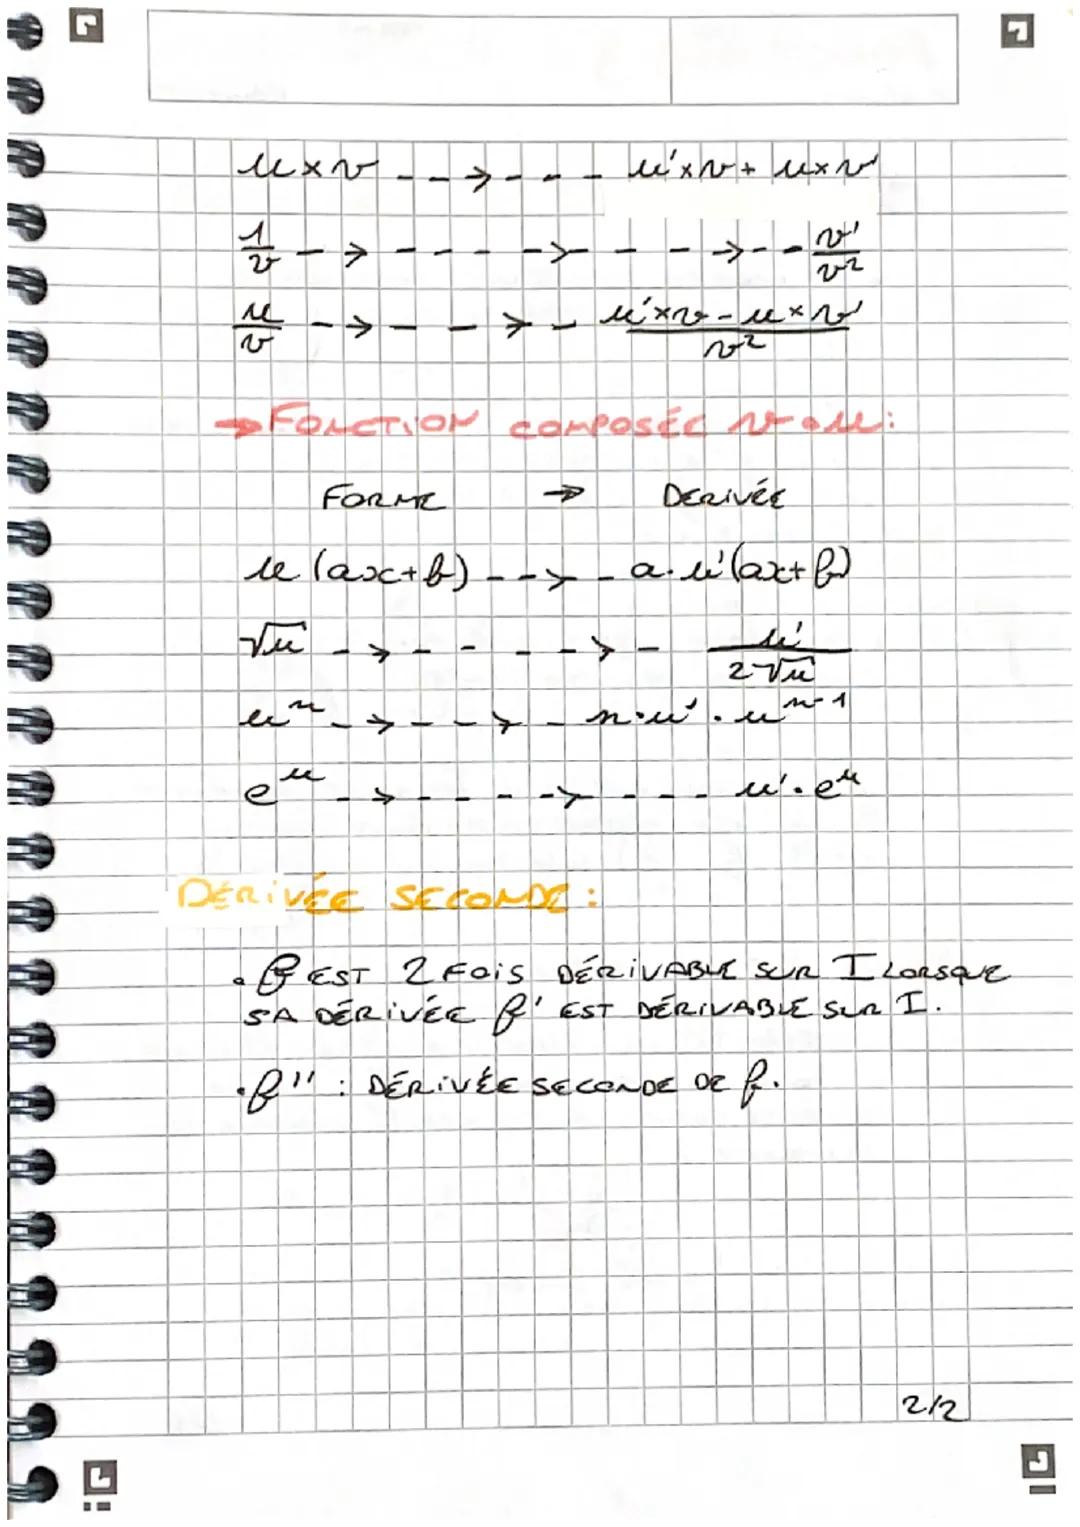 u×v --→--- u'×v + u×v'
1/v -→----→---→-- - v'/v²
u/v -→---→-- (u'×v - u×v')/v²
→ FONCTION COMPOSÉE v∘u :
FORME → DERIVÉE
u(ax+b) --→- a·u'(ax+b)
√u -→----→- u'/(2√u)
uⁿ -→--→- n·u'·uⁿ⁻¹
eᵘ -→---→--- u'·eᵘ
DÉRIVÉE SECONDE :
• f EST 2 FOIS DÉRIVABLE SUR I LORSQUE
SA DÉRIVÉE f' EST DÉRIVABLE SUR I.
• f'' : DÉRIVÉE SECONDE DE f.
2/2